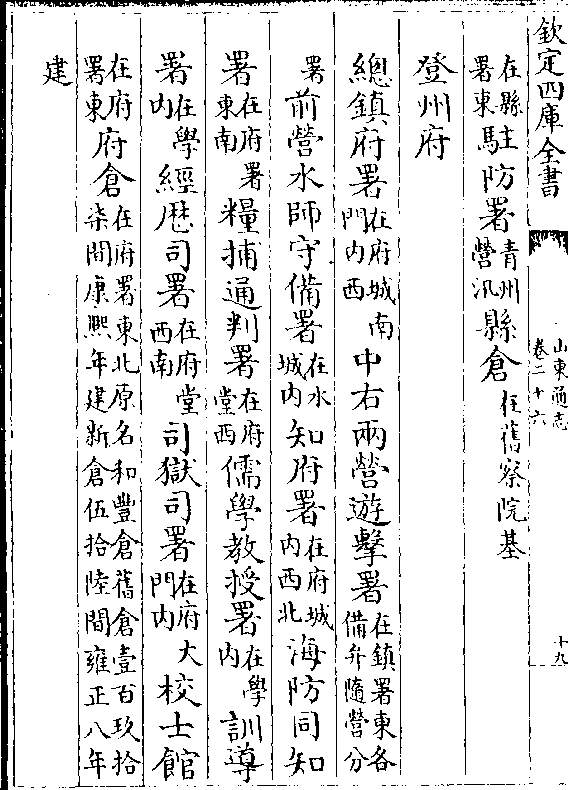 欽定四庫全書
山東通志
卷二十六
十九
在縣署東駐防署青州營汛縣倉在舊察院基
登州府
總鎮府署在府城南門内西中右兩營遊擊署在鎮署東各備弁隨營分
署前營水師守備署在水城内知府署在府城内西北海防同知
署在府署東南糧捕通判署在府堂西儒學教授署在學内訓導
署在學内經歴司署在府堂西南司獄司署在府大門内校士館
在府署東府倉在府署東北原名和豐倉舊倉壹百玖拾柒間康熙年建新倉伍拾陸間雍正八年
建